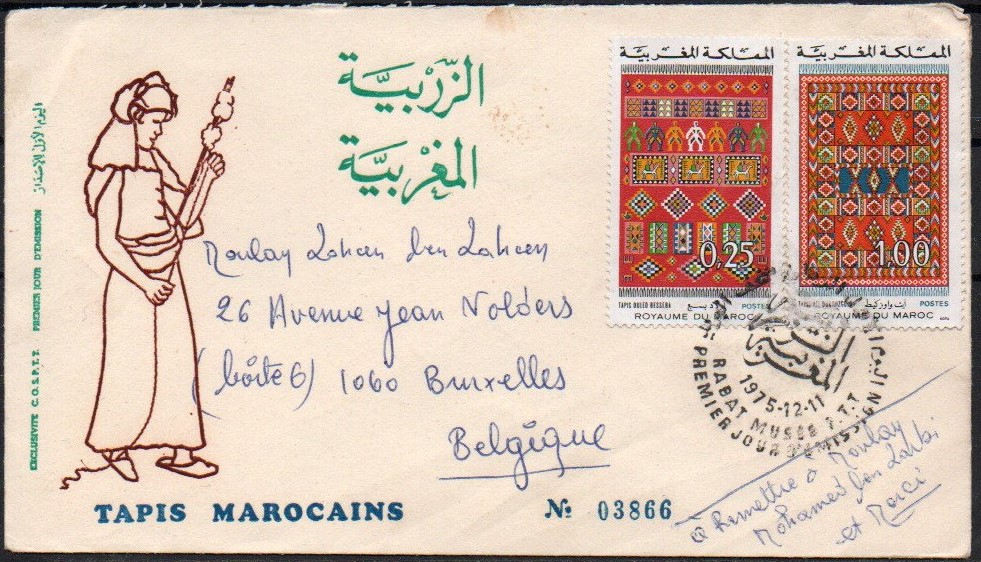 اليوم الأول للإصدار
EXCLUSIVITE C.O.S.P.T.T. PREMIER JOUR D'EMISSION
الزّربيّة
المغربيّة
Moulay Lahcen ben Lahcen
26 Avenue Jean Volders
(boîte 6) 1060 Bruxelles
Belgique
TAPIS MAROCAINS
№ 03866
المملكة المغربية
0,25
TAPIS OULED BESSEBA
POSTES
ROYAUME DU MAROC
المملكة المغربية
1,00
POSTES
ايت واوزكيط
ROYAUME DU MAROC
الزربية
المغربية
1975-12-11
RABAT MUSÉE P.T.T
PREMIER JOUR D'EMISSION
à Remettre à Moulay
Mohamed ben Larbi
et Merci